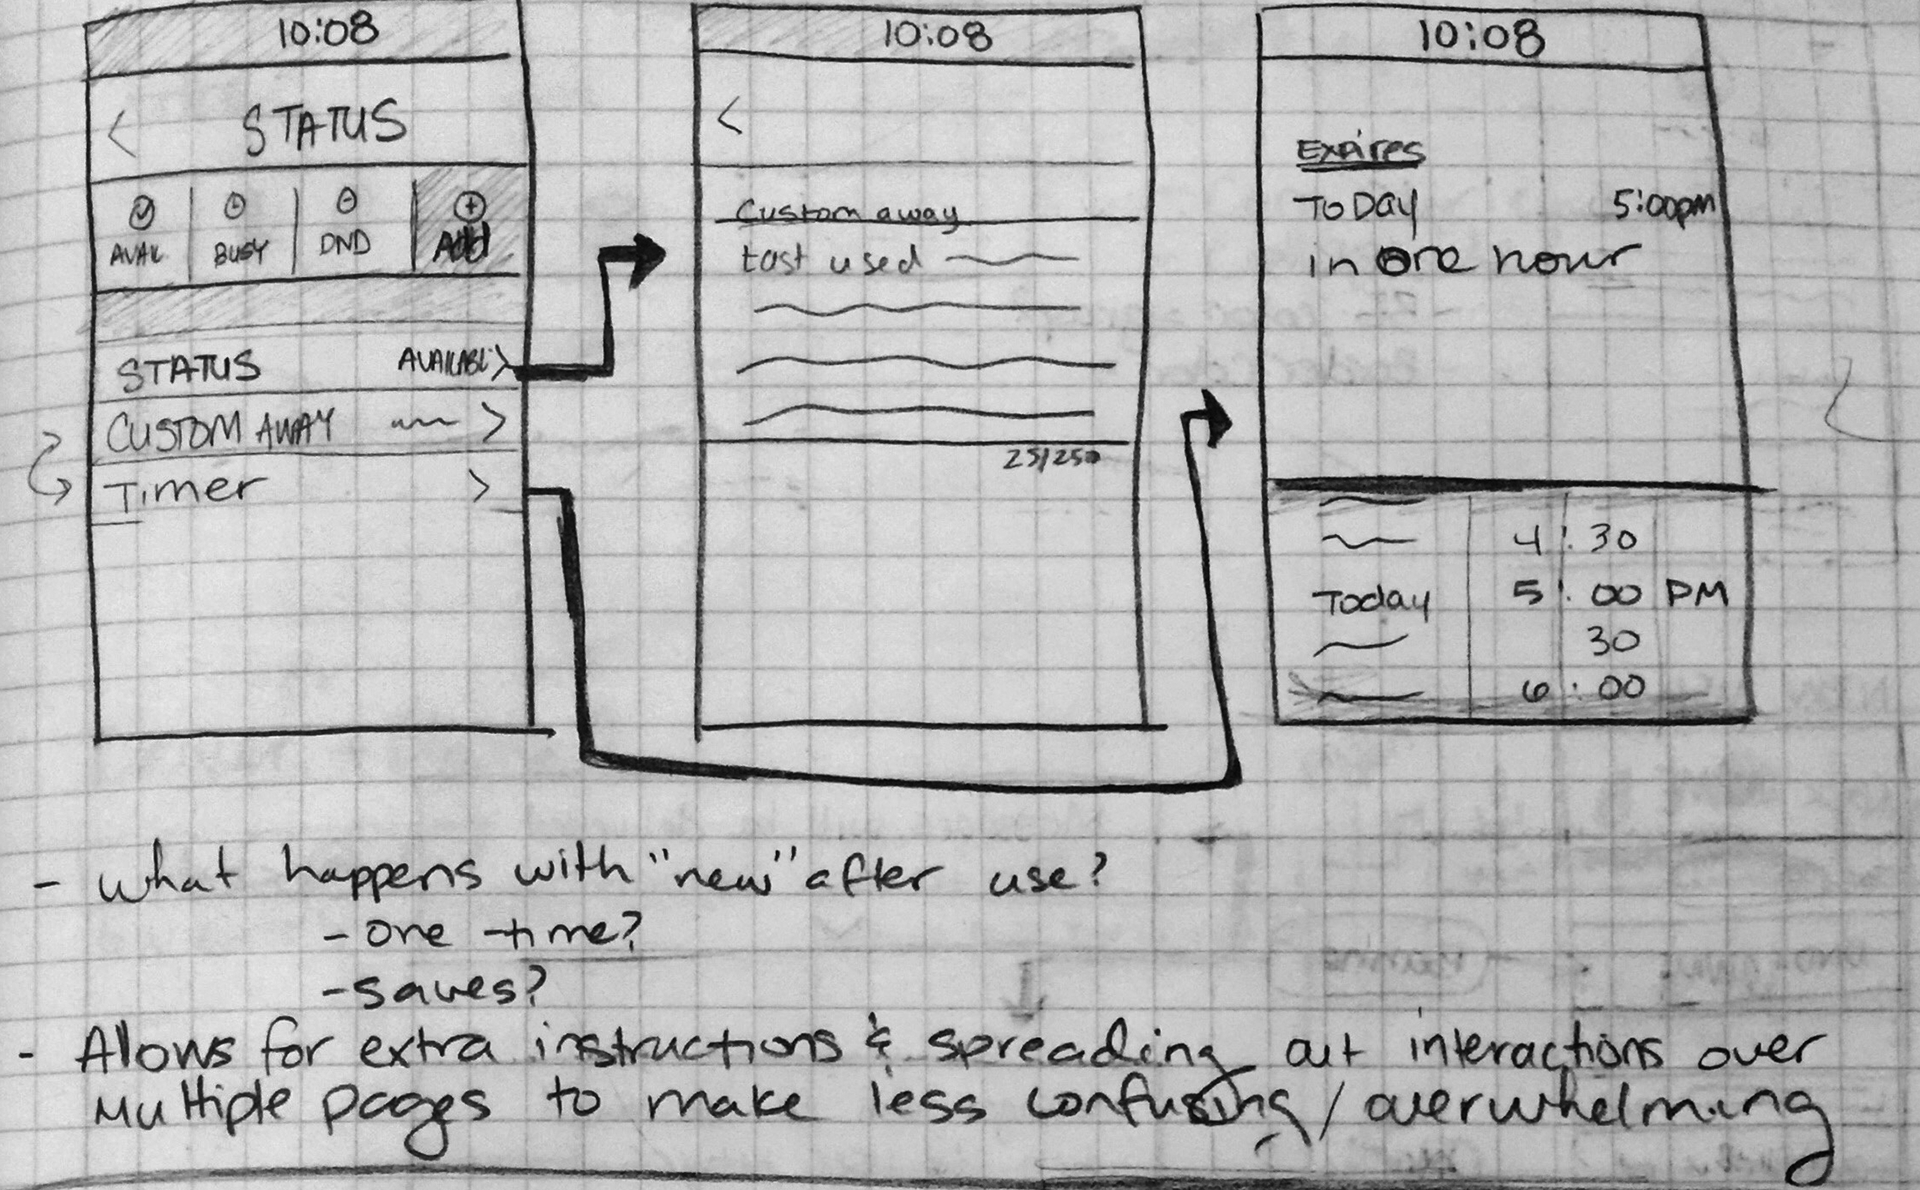 10:08
< STATUS
AVAIL BUSY DND Add
STATUS AVAILABL >
CUSTOM AWAY >
Timer >
10:08
<
Custom away
Last used
25/250
10:08
Expires
ToDay 5:00pm
in One hour
4:30
Today 5:00 PM
30
6:00
- what happens with "new" after use?
- one time?
- saves?
- Allows for extra instructions & spreading out interactions over
Multiple pages to make less confusing / overwhelming